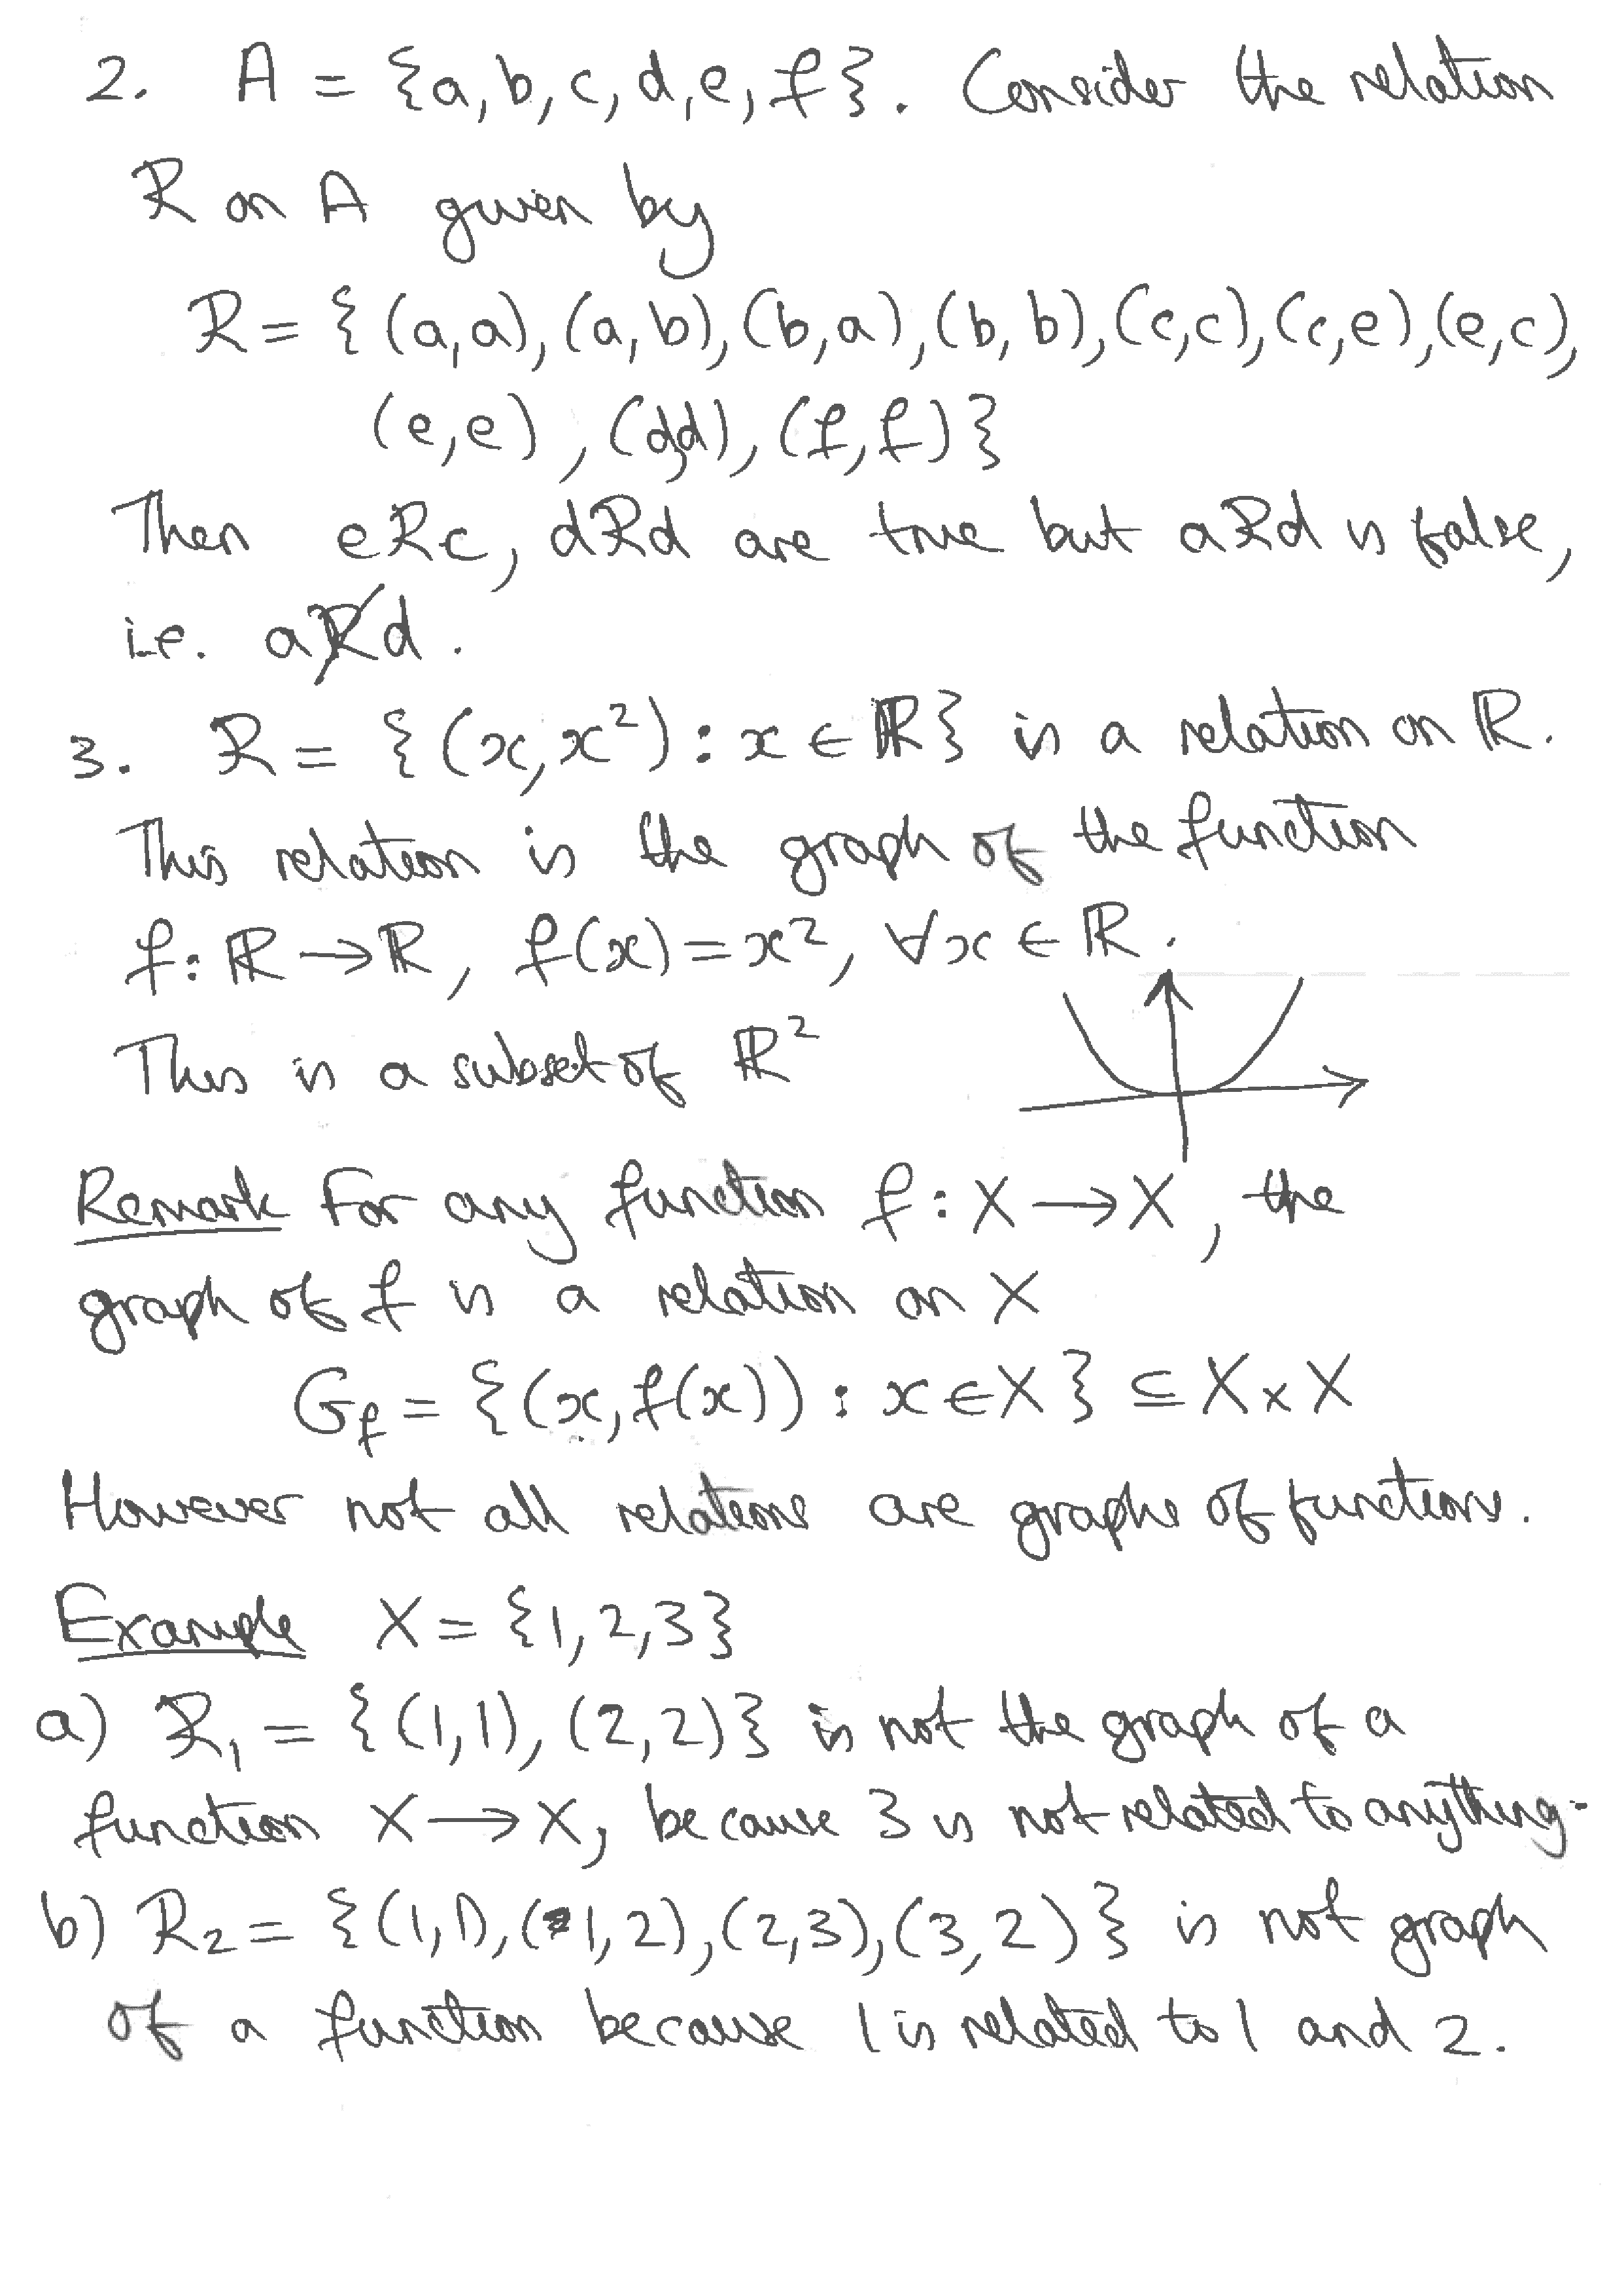 2. A = {a, b, c, d, e, f}. Consider the relation
R on A given by
R = { (a,a), (a,b), (b,a), (b,b), (c,c), (c,e), (e,c),
(e,e), (d,d), (f,f) }
Then eRc, dRd are true but aRd is false,
i.e. aR̸d.
3. R = { (x, x²) : x ∈ ℝ } is a relation on ℝ.
This relation is the graph of the function
f : ℝ → ℝ, f(x) = x², ∀x ∈ ℝ.
This is a subset of ℝ²
Remark For any function f : X → X, the
graph of f is a relation on X
G_f = { (x, f(x)) : x ∈ X } ⊆ X × X
However not all relations are graphs of functions.
Example X = {1, 2, 3}
a) R₁ = { (1,1), (2,2) } is not the graph of a
function X → X, because 3 is not related to anything.
b) R₂ = { (1,1), (1,2), (2,3), (3,2) } is not graph
of a function because 1 is related to 1 and 2.